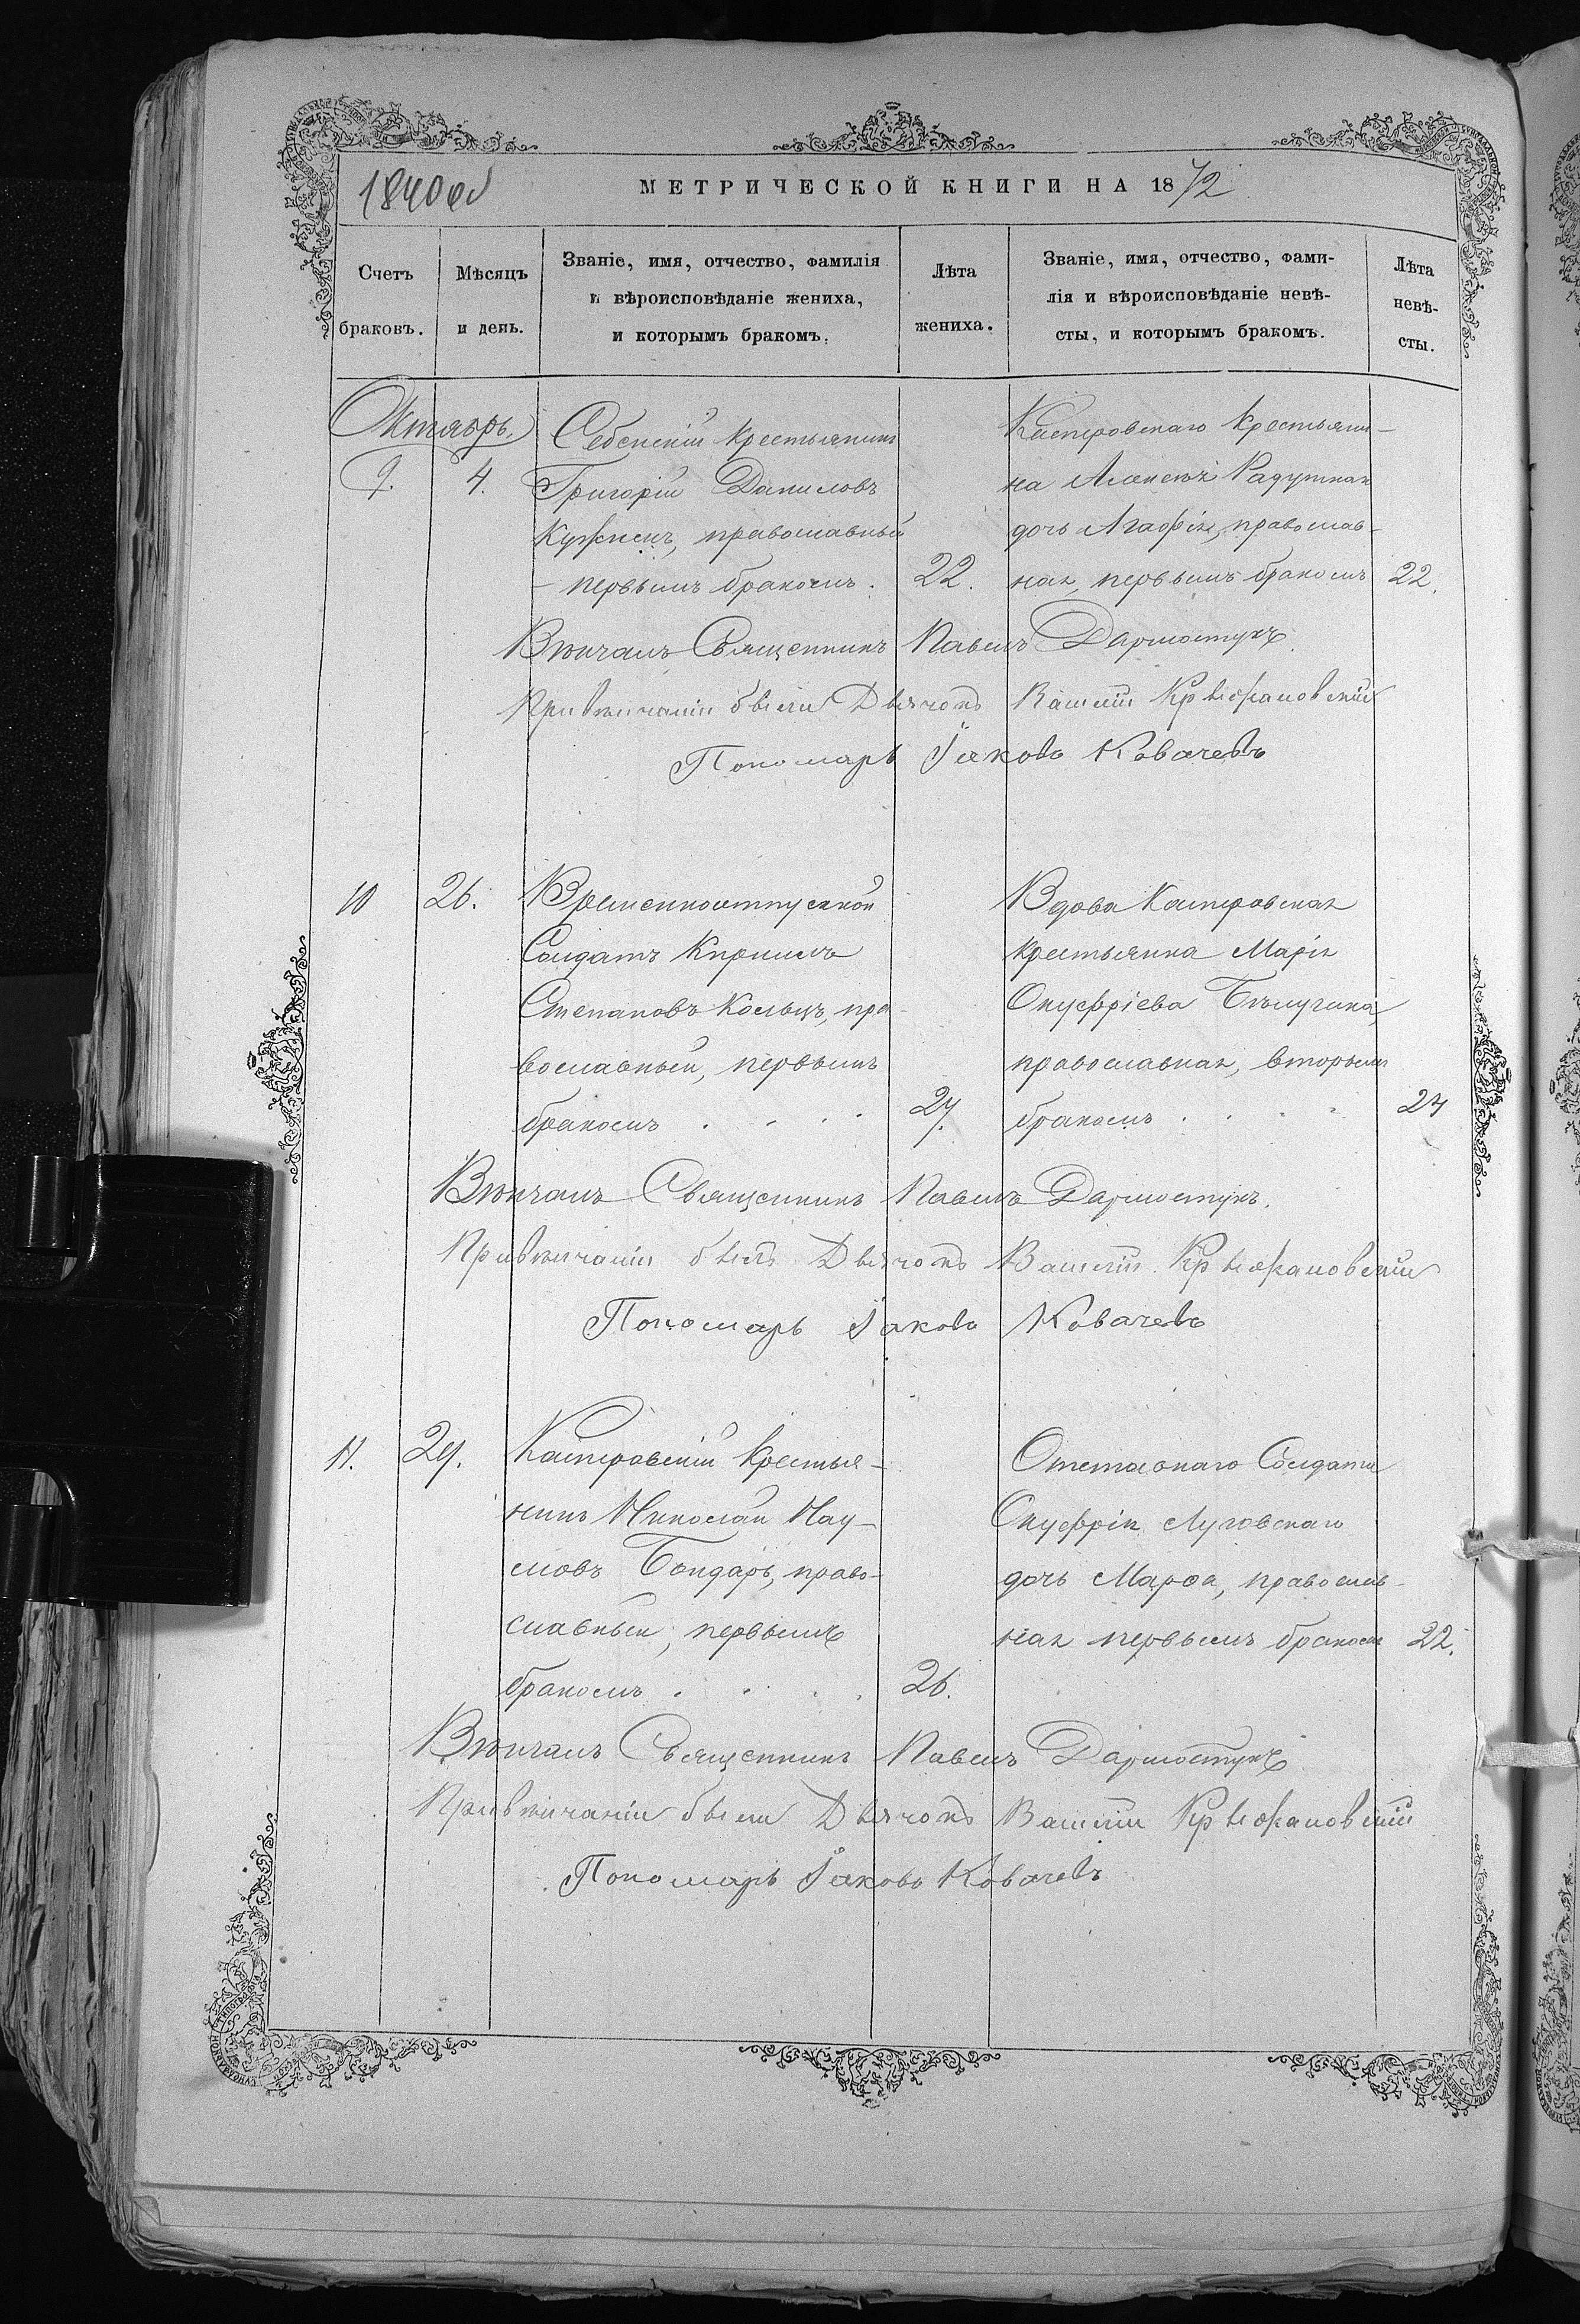 1840 об
МЕТРИЧЕСКОЙ КНИГИ НА 1872
Счетъ браковъ.
Мѣсяцъ и день.
Званіе, имя, отчество, фамилія
и вѣроисповѣданіе жениха,
и которымъ бракомъ.
Лѣта жениха.
Званіе, имя, отчество, фами-
лія и вѣроисповѣданіе невѣ-
сты, и которымъ бракомъ.
Лѣта невѣ-
сты.
Октябрь.
9.
4.
крестьянинъ
Григорій Даниловъ
православный
- первымъ бракомъ.
22.
Каетровскаго крестьяни-
на Алексѣя
дочь Агафія, православ-
ная, первымъ бракомъ
22.
Вѣнчалъ Священникъ Павелъ Дармостукъ.
При вѣнчаніи были Дьячокъ Василій Крыжановскій
Пономарь Іаковъ Ковачевъ
10
26.
Временноотпускной
Солдатъ Кирилъ
Степановъ Кольцъ, пра-
вославный, первымъ
бракомъ . . . .
27.
Вдова
крестьянка Марія
Онуфріева
православная, вторымъ
бракомъ . . . .
27
Вѣнчалъ Священникъ Павелъ Дармостукъ.
При вѣнчаніи былъ Дьячокъ Василій Крыжановскій
Пономарь Іаковъ Ковачевъ
11.
29.
крестья-
нинъ Николай Нау-
мовъ Бондарь, право-
славный, первымъ
бракомъ . . . .
26.
Отставнаго Солдата
Онуфрія Луговскаго
дочь Марѳа, православ-
ная первымъ бракомъ
22.
Вѣнчалъ Священникъ Павелъ Дармостукъ
При вѣнчаніи были Дьячокъ Василій Крыжановскій
Пономарь Іаковъ Ковачевъ